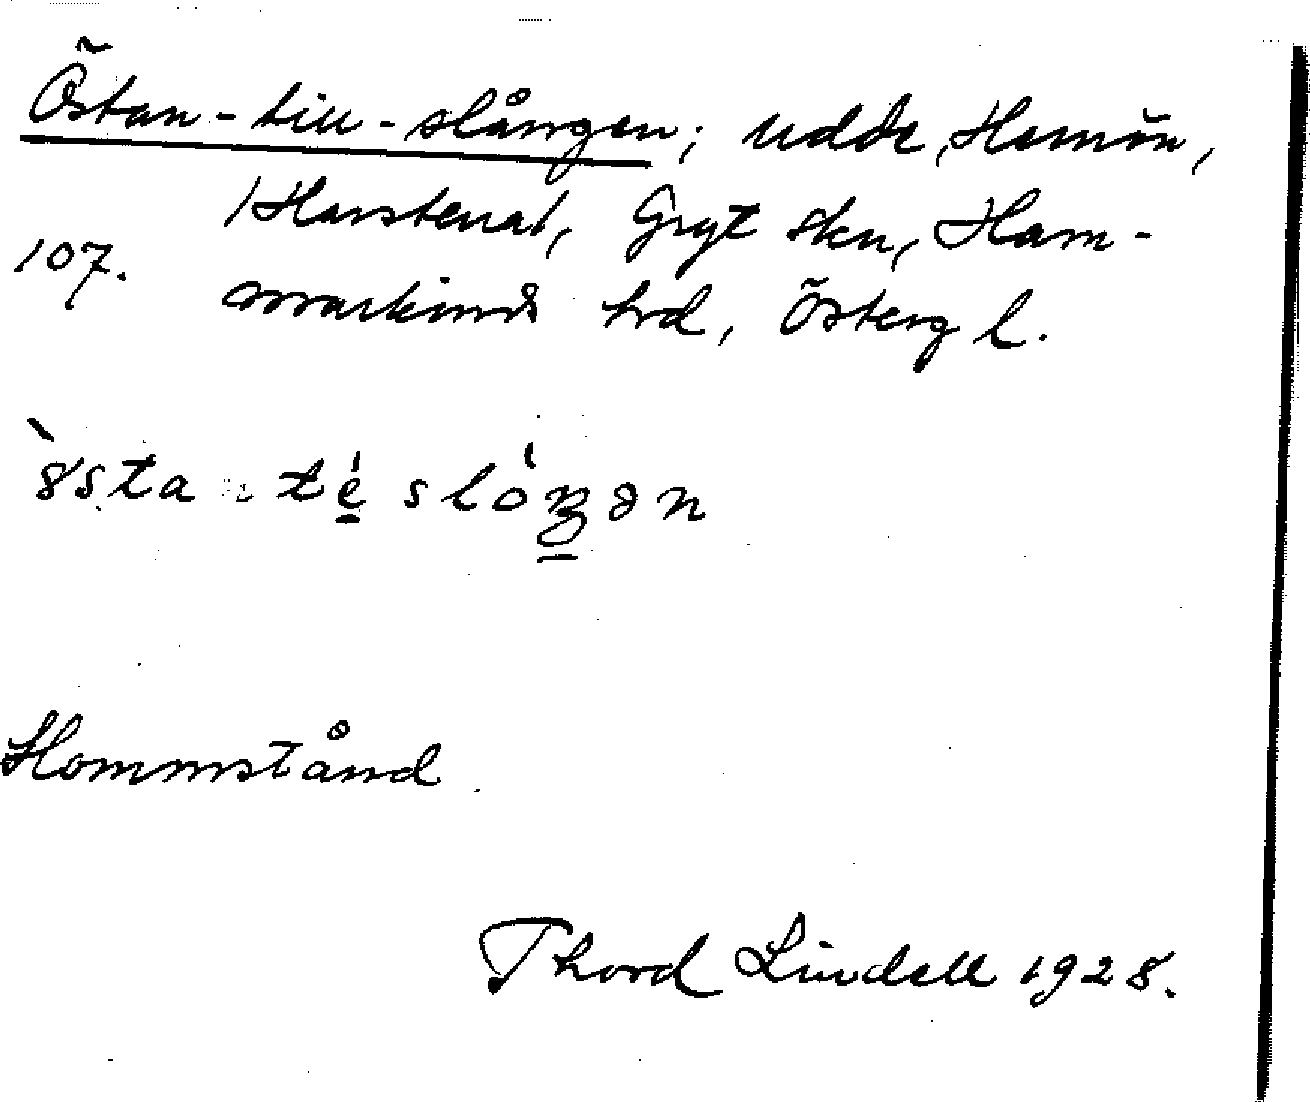 Östan-till-slången; udde, Hemön,
/Harstena/, Gryt skn, Ham-
107.
markinds hrd, Österg l.
östa té slóŋən
Hommstånd
Thord Lindell 1928.